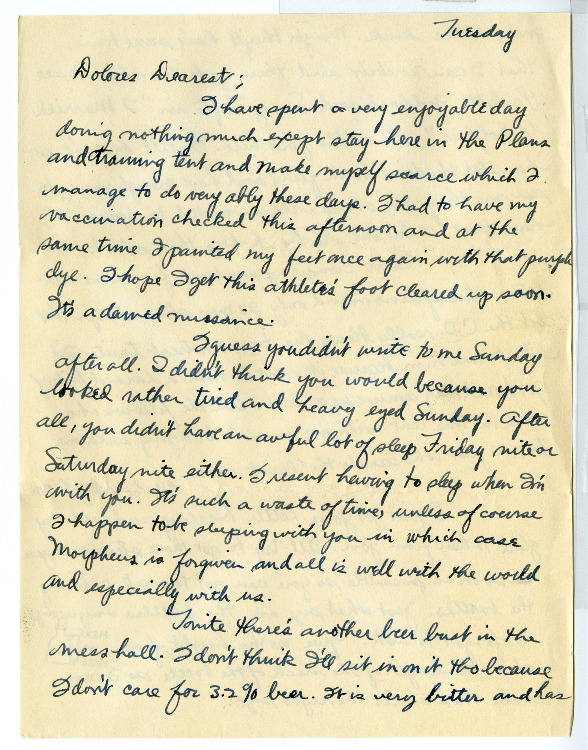 Tuesday
Dolores Dearest;
I have spent a very enjoyable day
doing nothing much except stay here in the Plans
and training tent and make myself scarce which I
manage to do very ably these days. I had to have my
vaccination checked this afternoon and at the
same time I painted my feet once again with that purple
dye. I hope I get this athletes foot cleared up soon.
It's a darned nuisance.
I guess you didn't write to me Sunday
after all. I didn't think you would because you
looked rather tired and heavy eyed Sunday. After
all, you didn't have an awful lot of sleep Friday nite or
Saturday nite either. I resent having to sleep when I'm
with you. It's such a waste of time, unless of course
I happen to be sleeping with you in which case
Morpheus is forgiven and all is well with the world
and especially with us.
Tonite there's another beer bust in the
mess hall. I don't think I'll sit in on it tho because
I don't care for 3.2% beer. It is very bitter and has